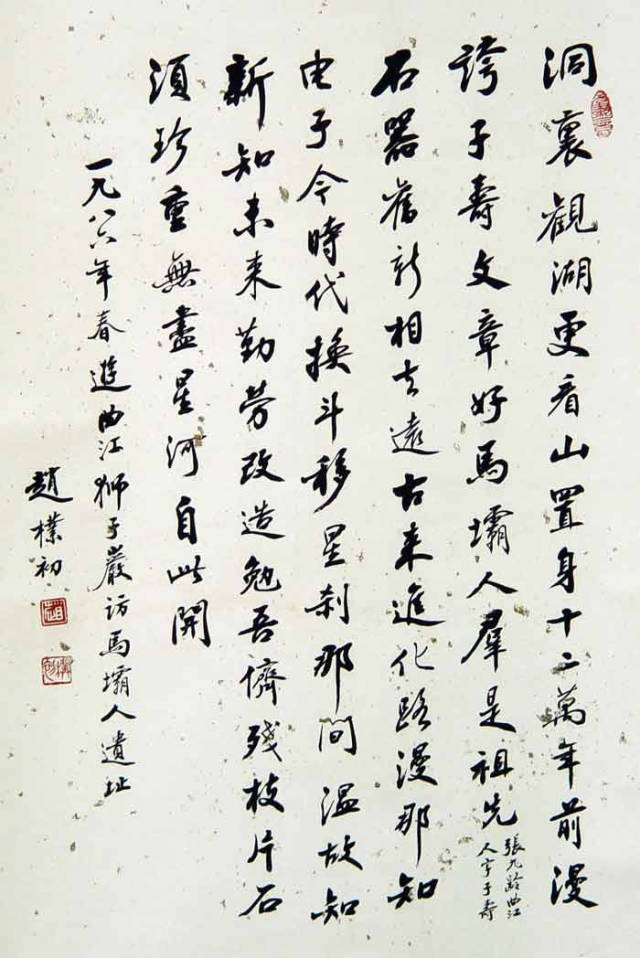 洞裏觀湖更看山置身十二萬年前漫
誇子壽文章好馬壩人羣是祖先
張九齡曲江
人字子壽
石器舊新相去遠古来進化路漫那知
电子今時代換斗移星刹那間温故知
新知未来勤勞改造勉吾儕殘枝片石
須珍重無盡星河自此開
一九八六年春遊曲江狮子巖访馬壩人遺址
趙樸初